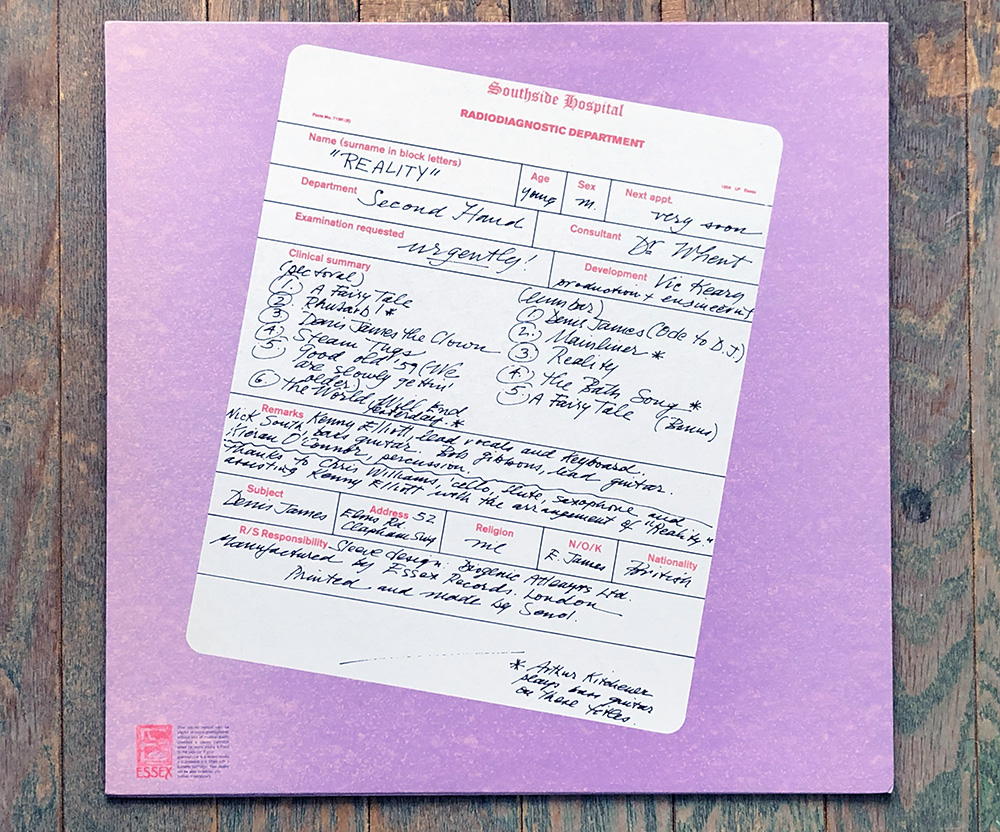 Southside Hospital
RADIODIAGNOSTIC DEPARTMENT
Name (surname in block letters)
"REALITY"
Age
Young
Sex
m.
Next appt.
very soon
Department
Second Hand
Consultant
Dr Whent
Examination requested
urgently!
Development Vic Keary
production + engineer
Clinical summary
(pectoral)
1. A Fairy Tale
2 Rhubarb! *
3 Denis James the Clown
4. Steam Tugs
5. Good old '59 (We
are slowly gettin'
older)
6. the World Will End
Yesterday. *
(lumbar)
1) Denis James (Ode to D.J)
2. Mainliner *
3 Reality
4. the Bath Song *
5. A Fairy Tale (Bonus)
Remarks Kenny Elliott, lead vocals and keyboard.
Nick South bass guitar. Bob Gibbons, lead guitar.
Kieran O'Connor, percussion.
thanks to Chris Williams, 'cello, flute, saxophone and
assisting Kenny Elliott with the arrangement of "Reality."
Subject
Denis James
Address 52
Elms Rd.
Clapham
Religion
nil
N/O/K
E. James
Nationality
British
R/S Responsibility Sleeve design: Ltd.
Manufactured by Essex Records. London
Printed and made by Senol.
* Arthur Kitchener
plays bass guitar
on these titles.
ESSEX